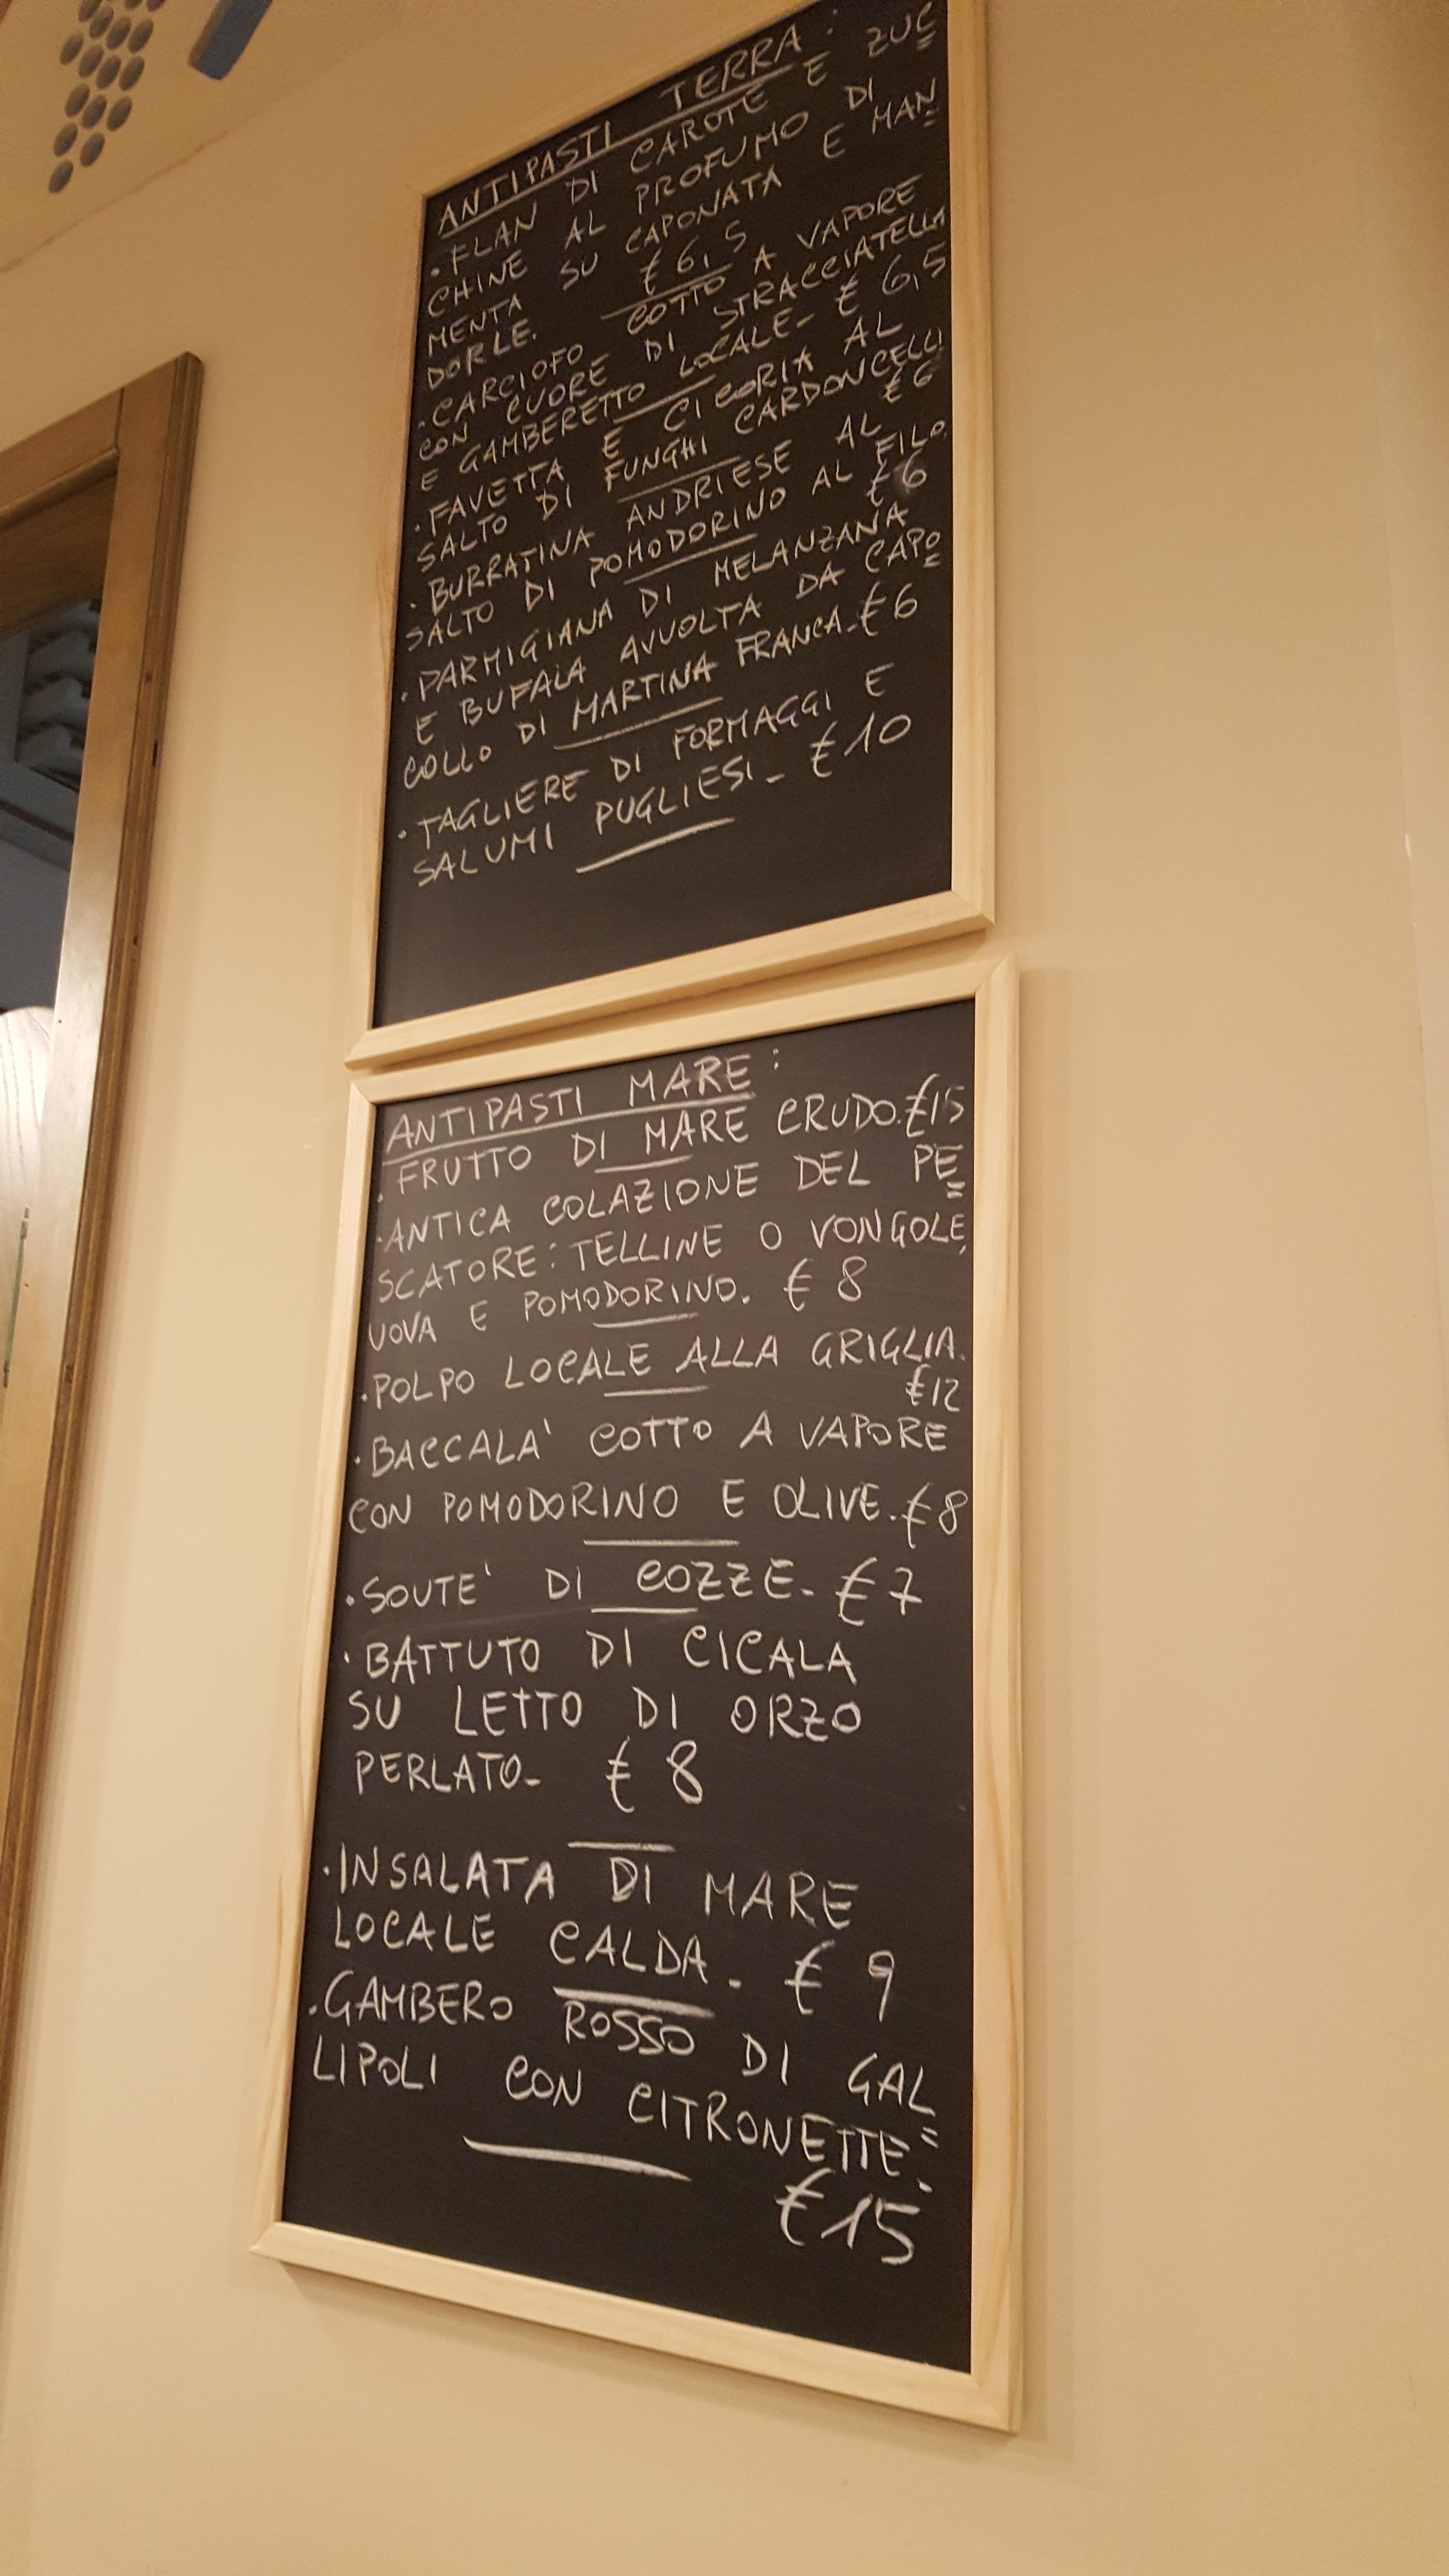 ANTIPASTI TERRA:
. FLAN DI CAROTE E ZUC=
CHINE AL PROFUMO DI
MENTA SU CAPONATA E MAN=
DORLE. € 6,5
. CARCIOFO COTTO A VAPORE
CON CUORE DI STRACCIATELLA
E GAMBERETTO LOCALE- € 6,5
. FAVETTA E CICORIA AL
SALTO DI FUNGHI CARDONCELLI
€ 6
. BURRATINA ANDRIESE AL
SALTO DI POMODORINO AL FILO.
€ 6
. PARMIGIANA DI MELANZANA
E BUFALA AVVOLTA DA CAPO=
COLLO DI MARTINA FRANCA- € 6
. TAGLIERE DI FORMAGGI E
SALUMI PUGLIESI- € 10
ANTIPASTI MARE:
. FRUTTO DI MARE CRUDO. €15
. ANTICA COLAZIONE DEL PE=
SCATORE: TELLINE O VONGOLE,
UOVA E POMODORINO. € 8
. POLPO LOCALE ALLA GRIGLIA.
€12
. BACCALA' COTTO A VAPORE
CON POMODORINO E OLIVE. € 8
. SOUTE' DI COZZE- € 7
. BATTUTO DI CICALA
SU LETTO DI ORZO
PERLATO- € 8
. INSALATA DI MARE
LOCALE CALDA. € 9
. GAMBERO ROSSO DI GAL=
LIPOLI CON CITRONETTE.
€15